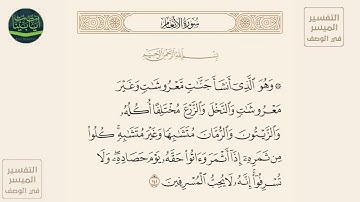 التفسير
الميسر
في الوصف
سورة الأنعام
بسم الله الرحمن الرحيم
۞ وَهُوَ ٱلَّذِىٓ أَنشَأَ جَنَّٰتٍ مَّعْرُوشَٰتٍ وَغَيْرَ
مَعْرُوشَٰتٍ وَٱلنَّخْلَ وَٱلزَّرْعَ مُخْتَلِفًا أُكُلُهُۥ
وَٱلزَّيْتُونَ وَٱلرُّمَّانَ مُتَشَٰبِهًا وَغَيْرَ مُتَشَٰبِهٍ ۚ كُلُوا۟
مِن ثَمَرِهِۦٓ إِذَآ أَثْمَرَ وَءَاتُوا۟ حَقَّهُۥ يَوْمَ حَصَادِهِۦ ۖ وَلَا
تُسْرِفُوٓا۟ ۚ إِنَّهُۥ لَا يُحِبُّ ٱلْمُسْرِفِينَ ١٤١
التفسير
الميسر
في الوصف